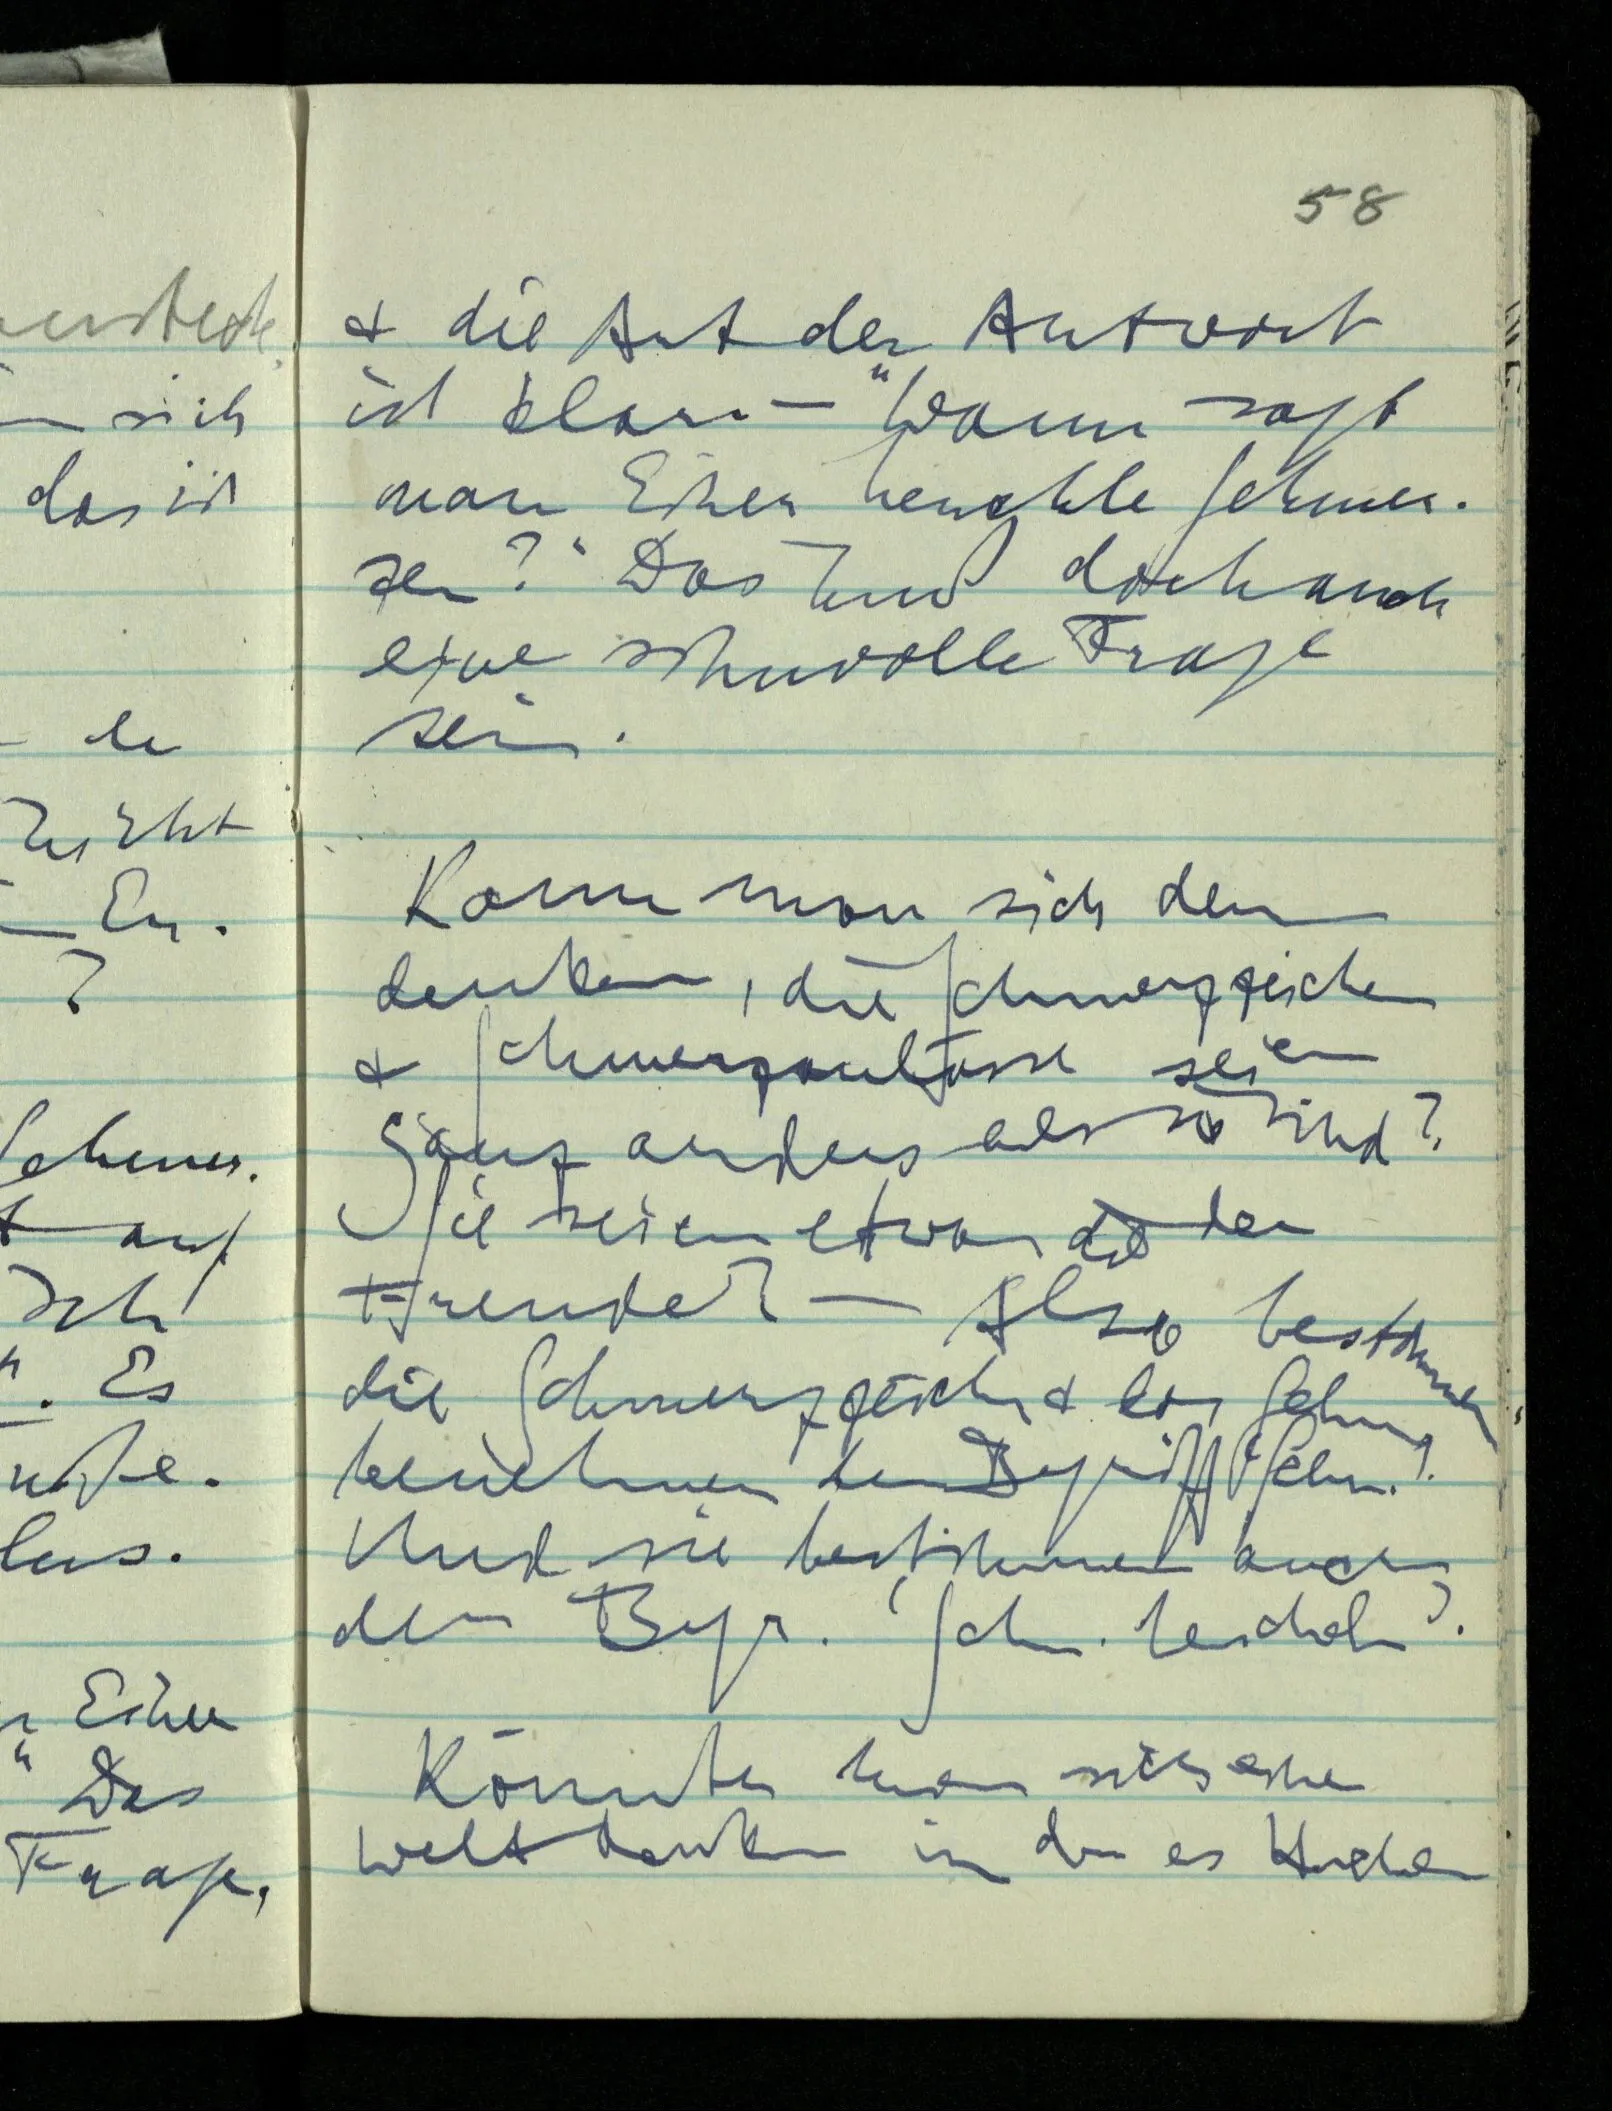 verstecke.
sich
das ist
de
nicht
En.
?
Schmer.
t auf
Ich
". Es
Eine
" Das
Frage,
58
& die Art der Antwort
ist klar. – "Wann sagt
man Einer heuchle Schmer-
zen?" Das muß doch auch
eine sinnvolle Frage
sein.
Kann man sich denn
denken, die Schmerzzeichen
& Schmerzanlässe seien
ganz anders als sie sind?
Sie seien etwa die der
Freude? – Also bestimmen
die Schmerzzeichen & das Schmerz
benehmen den Begriff 'Schm.'.
Und sie bestimmen auch
den Begr. 'Schm. heucheln'.
Könnte man sich eine
Welt denken in der es Heucheln